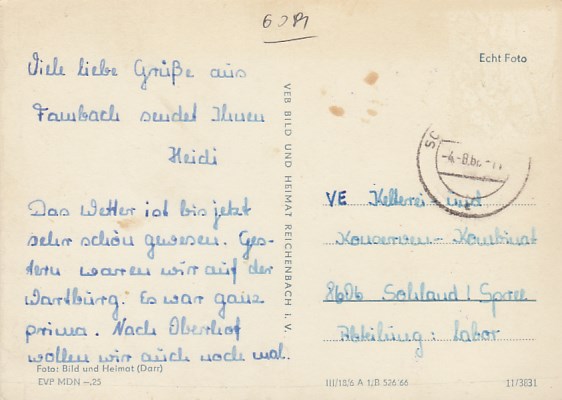 Echt Foto
Viele liebe Grüße aus
Fambach sendet Ihnen
Heidi
Das Wetter ist bis jetzt
sehr schön gewesen. Ges-
tern waren wir auf der
Wartburg. Es war ganz
prima. Nach Oberhof
wollen wir auch noch mal.
Foto: Bild und Heimat (Darr)
EVP MDN –.25
VEB BILD UND HEIMAT REICHENBACH I. V.
VE Kelterei- und
Konserven- Kombinat
8606 Sohland / Spree
Abteilung: Labor
III/18/6 A 1/B 526/66
11/3831